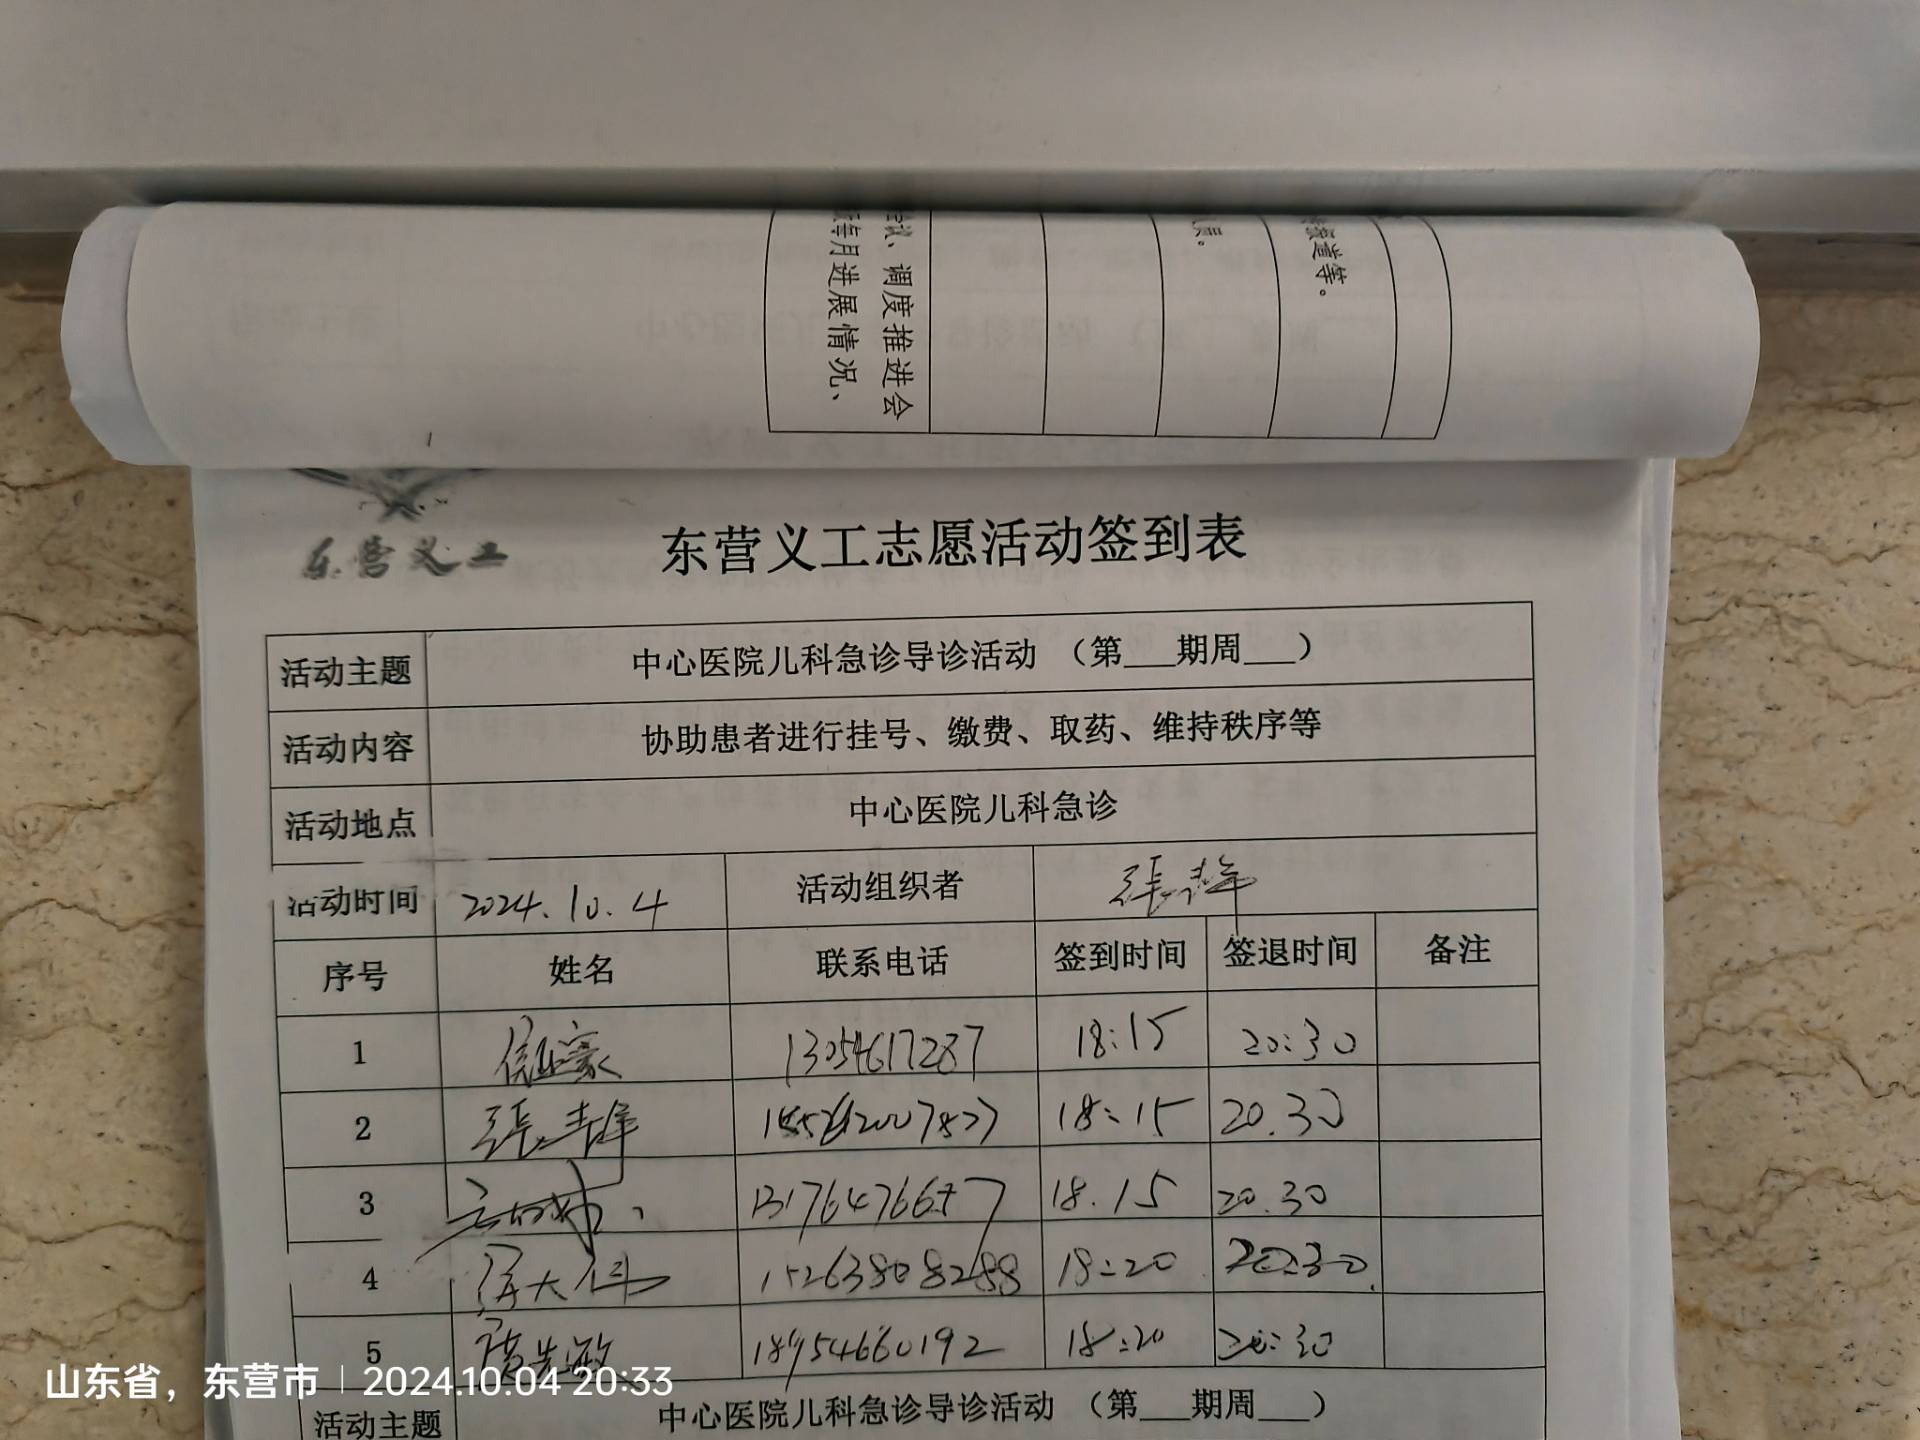 会议、调度推进会
每月进展情况、
员。
报道等。
东营义工
东营义工志愿活动签到表
活动主题 中心医院儿科急诊导诊活动 （第___期周___）
活动内容 协助患者进行挂号、缴费、取药、维持秩序等
活动地点 中心医院儿科急诊
活动时间 2024.10.4 活动组织者
序号 姓名 联系电话 签到时间 签退时间 备注
1 13054617287 18:15 20:30
2 18:15 20.30
3 13176476657 18.15 20.30
4 15263808288 18:20 20:30
5 18954660192 18:20 20:30
活动主题 中心医院儿科急诊导诊活动 （第___期周___）
山东省，东营市 2024.10.04 20:33